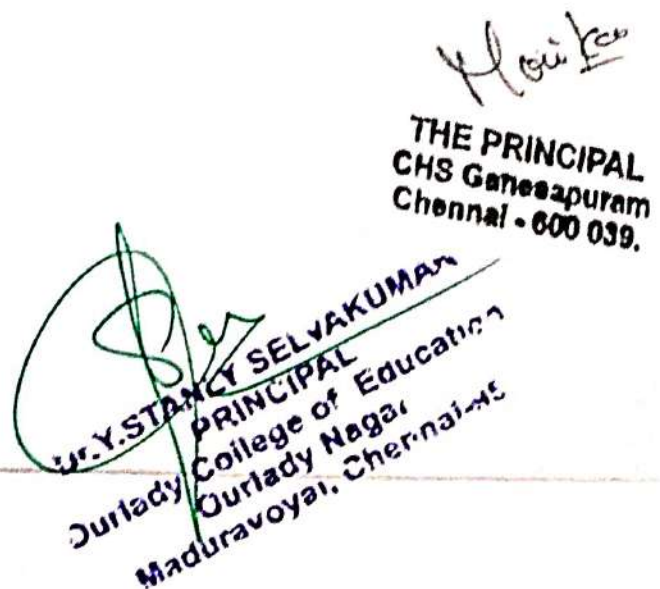 THE PRINCIPAL
CHS Ganesapuram
Chennai - 600 039.
Dr.Y.STANLY SELVAKUMAR
PRINCIPAL
Ourlady College of Education
Ourlady Nagar
Maduravoyal, Chennai-95